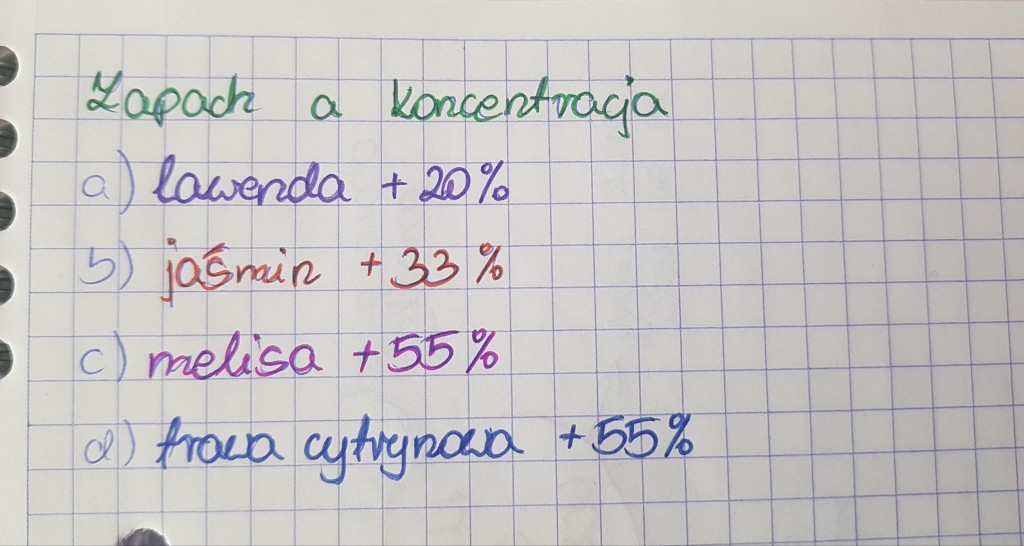 Zapach a koncentracja
a) lawenda + 20%
b) jaśmin + 33%
c) melisa + 55%
d) trawa cytrynowa + 55%